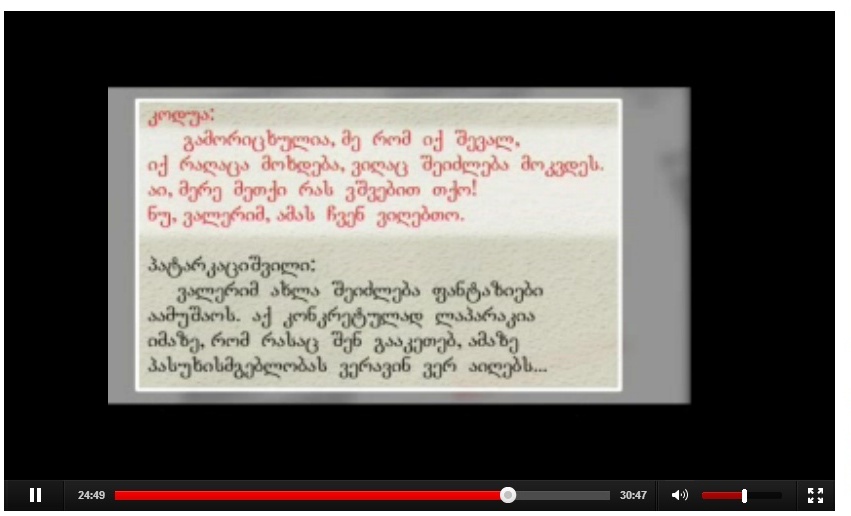 კოდუა:
გამორიცხულია, მე რომ იქ შევალ,
იქ რაღაცა მოხდება, ვიღაც შეიძლება მოკვდეს.
აი, მერე მეთქი რას ვშვებით თქო!
ნუ, ვალერიმ, ამას ჩვენ ვიღებთო.
პატარკაციშვილი:
ვალერიმ ახლა შეიძლება ფანტაზიები
აამუშაოს. აქ კონკრეტულად ლაპარაკია
იმაზე, რომ რასაც შენ გააკეთებ, ამაზე
პასუხისმგებლობას ვერავინ ვერ აიღებს...
24:49 30:47